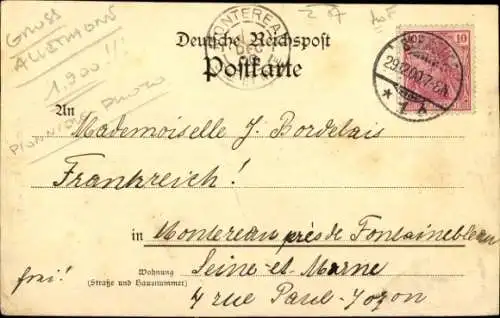 GRUSS
ALLEMAGNE
1.900!!!
PIONNIÈRE PHOTO
MONTEREAU
DEC
Deutsche Reichspost
Postkarte
10
29.12.00.7-8N.
* 1 k
An
Mademoiselle J. Bordelais
Frankreich!
in Montereau près de Fontainebleau
Wohnung Seine-et-Marne
(Straße und Hausnummer)
frei!
4 rue Paul-Jozon